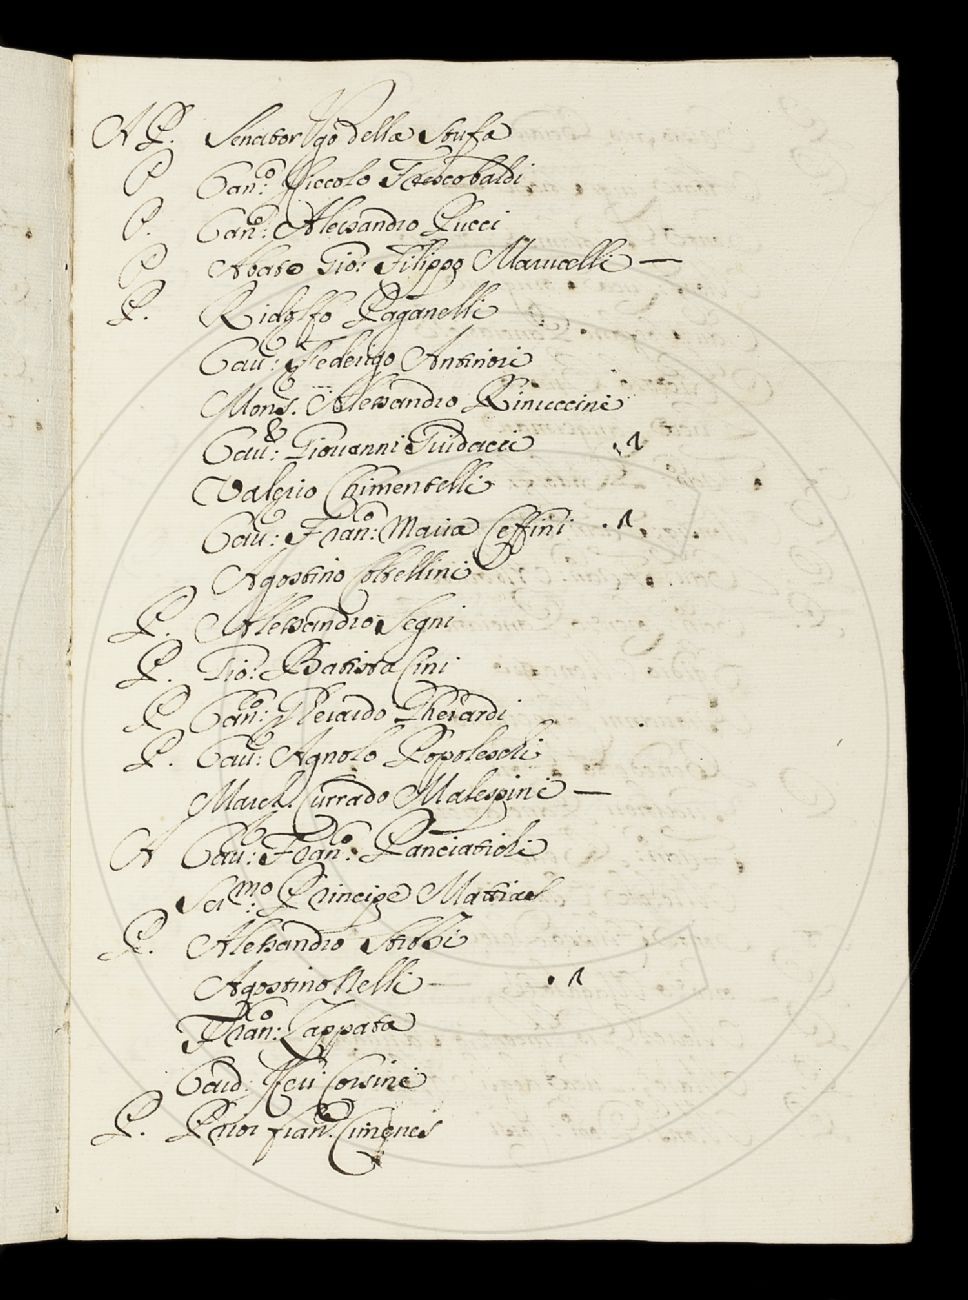 A P. Senator Ugo della Stufa
P Can.º Niccolo Frescobaldi
P. Can.º: Alessandro Pucci
P Abate Gio: Filippo Marucelli —
P. Ridolfo Paganelli
Cau: Federigo Antinori
Mons. Alessandro Rinuccini
Cau: Giovanni Guidacci
Valerio Chimentelli
Cau: Fran:º Maria Ceffini
Agostino Coltellini
P. Alessandro Segni
P. Gio: Batista Cini
P Can:º Gherardo Gherardi
P. Cau: Agnolo Popoleschi
March. Currado Malespini —
A Cau: Fran:º Panciatichi
Ser.mo Principe Mattias
P. Alessandro Strozzi
Agostino Nelli
Fran:º Zappata
Card: Neri Corsini
P. Prior Fran.º Ximenes